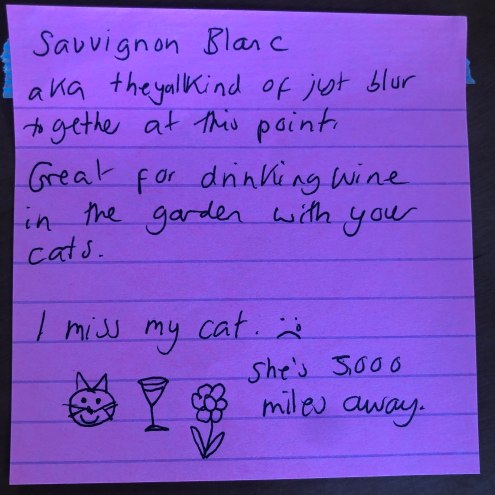 Sauvignon Blanc
aka theyalkind of just blur
togethe at this point.
Great for drinking wine
in the garden with your
cats.
I miss my cat. :(
she's 5,000
miles away.